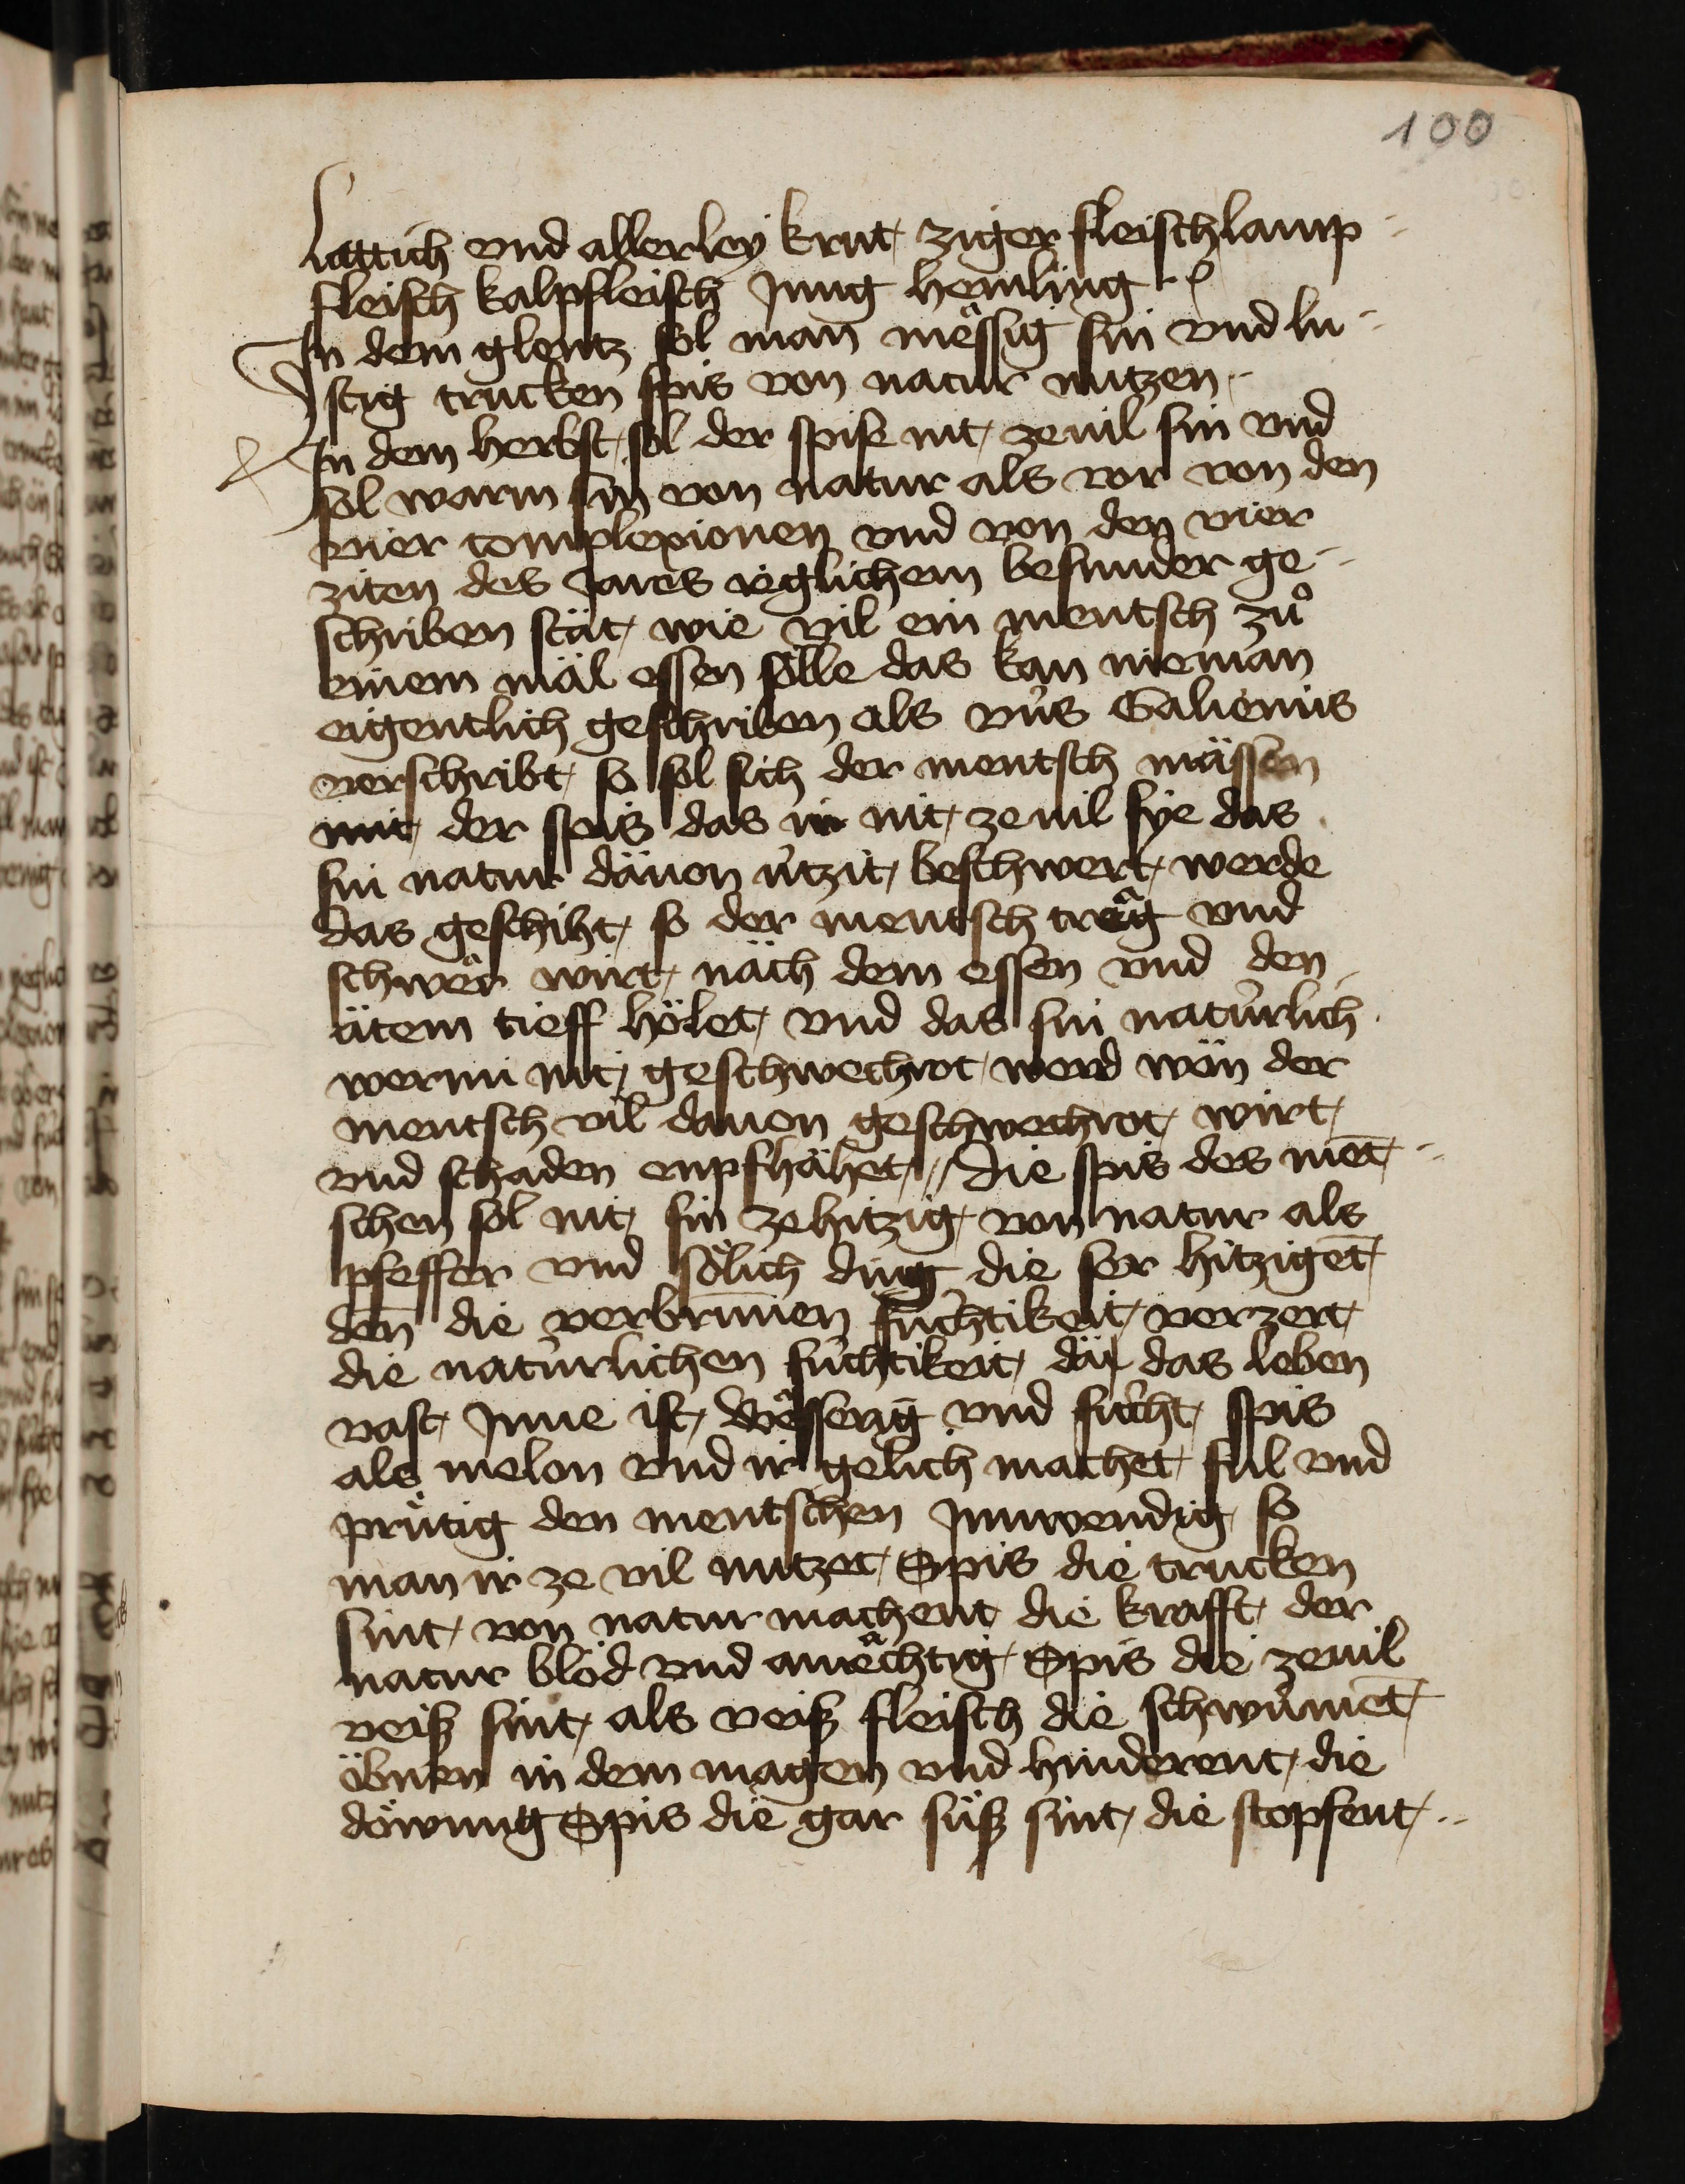 100
Lattich vnd allerley krut ziger fleisch lamp-
fleisch kalpfleisch Jung hemling
In dem glentz sol man mêssig sin vnd lu-
stig trucken spis von natur nutzen
In dem herbst sol der spise nit zeuil sin vnd
sol warm sin von natur als vor von den
vier complexionen vnd von den vier
ziten des Jares ieglichem besunder ge-
schriben stät wie vil ein mentsch zů
einem mäl essen sölle das kan nieman
eigentlich geschriben als vns Galienus
verschribt so sol sich der mentsch mässen
mit der spis das ir nit zeuil sye das
sin natur däuon ützit beschwert werde
das geschiht so der mentsch treâg vnd
schwêr wirt näch dem essen vnd den
ätem tieff hölet vnd das sin natürlich
wermi nit geschwechrot werd wän der
mentsch vil dauon geschwechrot wirt
vnd schaden enpfhähet // Die spis des mēt-
schen sol nit sin ze hitzig von natur als
pfeffer vnd sölich ding die ser hitzigēt
den̄ die verbrūnen füchtikeit verzert
die natürlichen füchtikeit där das leben
vast Jnne ist Wêsserig vnd fücht spis
als melon vnd ir gelich machet ful vnd
prütig den mentschen Jnnwendig so
man ir ze vil nutzet Spis die trucken
sint von natur machent die krafft der
natur blöd vnd amêchtig Spis die zeuil
veisz sint als veisz fleisch die schwümēt
öbnen in dem magen vnd hinderent die
döwung Spis die gar süsz sint die stopfent